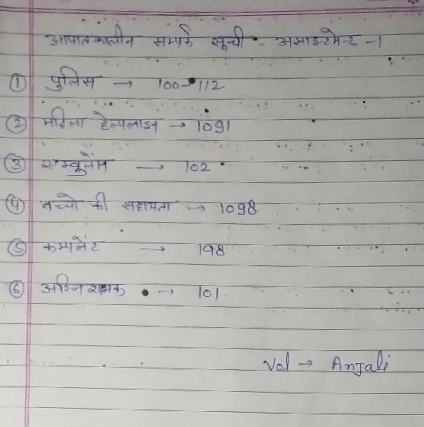 आपातकालीन सम्पर्क सूची - असाइनमेन्ट -1
① पुलिस → 100-112
② महिला हेल्पलाइन → 1091
③ एम्बुलेंस → 102
④ बच्चो की सहायता → 1098
⑤ कम्पलेंट → 198
⑥ अग्निशमक → 101
Vol → Anjali